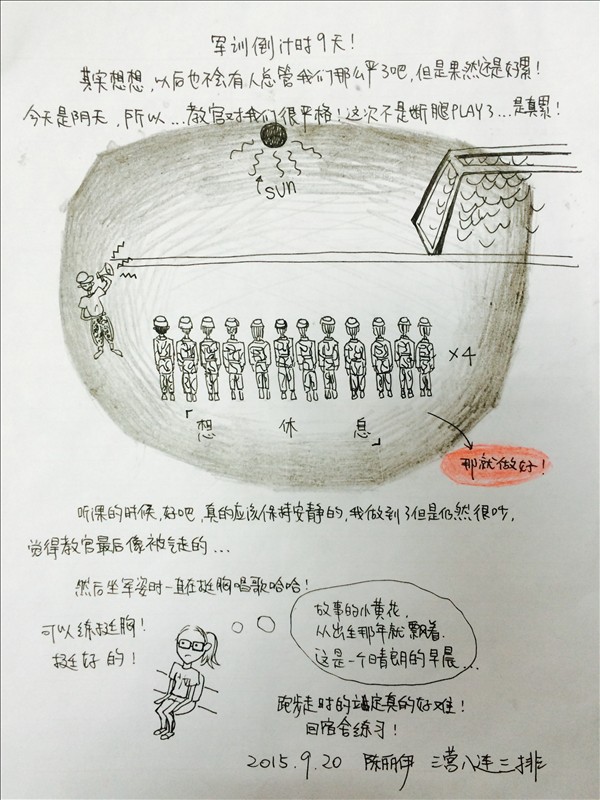 军训倒计时9天!
其实想想,以后也不会有人总管我们那么严了吧,但是果然还是好累!
今天是阴天,所以...教官对我们很严格!这次不是断腿PLAY了...是真累!
sun
×4
「想 休 息」
那就做好!
听课的时候,好吧,真的应该保持安静的,我做到了但是仍然很吵,
觉得教官最后像被气走的...
然后坐军姿时一直在挺胸唱歌哈哈!
可以练挺胸!
挺好的!
故事的小黄花,
从出生那年就飘着.
这是一个晴朗的早晨...
跑步走时的立定真的好难!
回宿舍练习!
2015.9.20 陈丽伊 三营八连三排